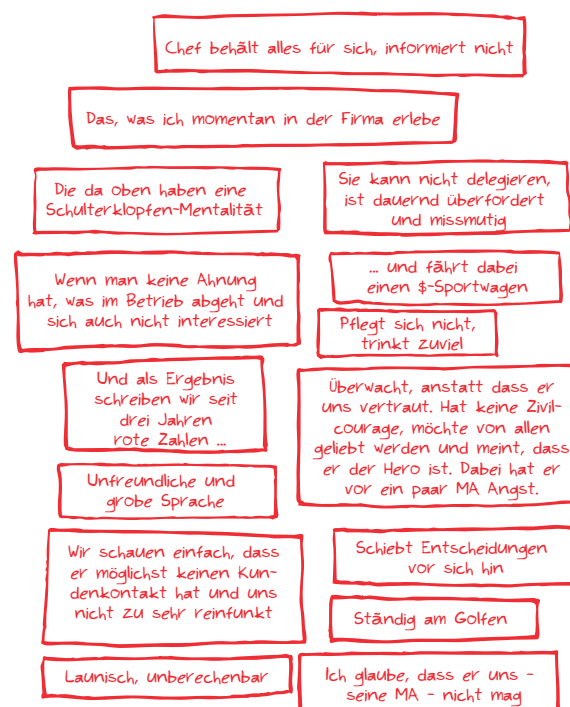 Chef behält alles für sich, informiert nicht
Das, was ich momentan in der Firma erlebe
Die da oben haben eine
Schulterklopfen-Mentalität
Sie kann nicht delegieren,
ist dauernd überfordert
und missmutig
Wenn man keine Ahnung
hat, was im Betrieb abgeht und
sich auch nicht interessiert
... und fährt dabei
einen $-Sportwagen
Pflegt sich nicht,
trinkt zuviel
Und als Ergebnis
schreiben wir seit
drei Jahren
rote Zahlen ...
Überwacht, anstatt dass er
uns vertraut. Hat keine Zivil-
courage, möchte von allen
geliebt werden und meint, dass
er der Hero ist. Dabei hat er
vor ein paar MA Angst.
Unfreundliche und
grobe Sprache
Wir schauen einfach, dass
er möglichst keinen Kun-
denkontakt hat und uns
nicht zu sehr reinfunkt
Schiebt Entscheidungen
vor sich hin
Ständig am Golfen
Launisch, unberechenbar
Ich glaube, dass er uns -
seine MA - nicht mag